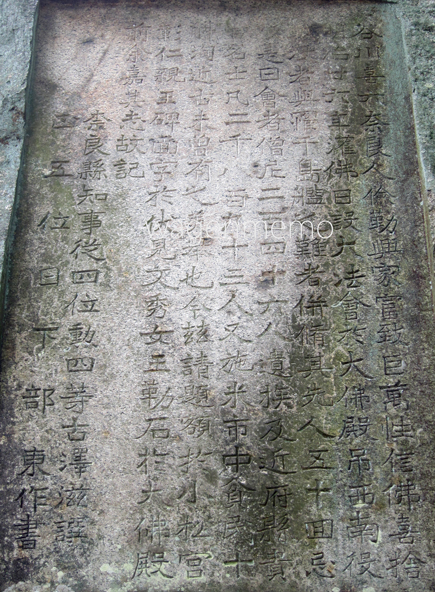 谷川喜六奈良人儉勤興家富致巨萬性信佛喜捨
廿六年灌佛日設大法會於大佛殿吊西南役
老與軍千島艦 難者併 其先人五十回忌
是日會者僧尼二百四十六人遺族及近府縣貴
名士凡二千八百九十三人又施米市中貧民十
近古未曾有之 也今茲請題額於小松宮
彰仁親王碑面字於伏見文秀女王勒石於大佛殿
余嘉其志故記
奈良縣知事從四位勳四等古澤滋譔
正五位日下部東作書
@ memo